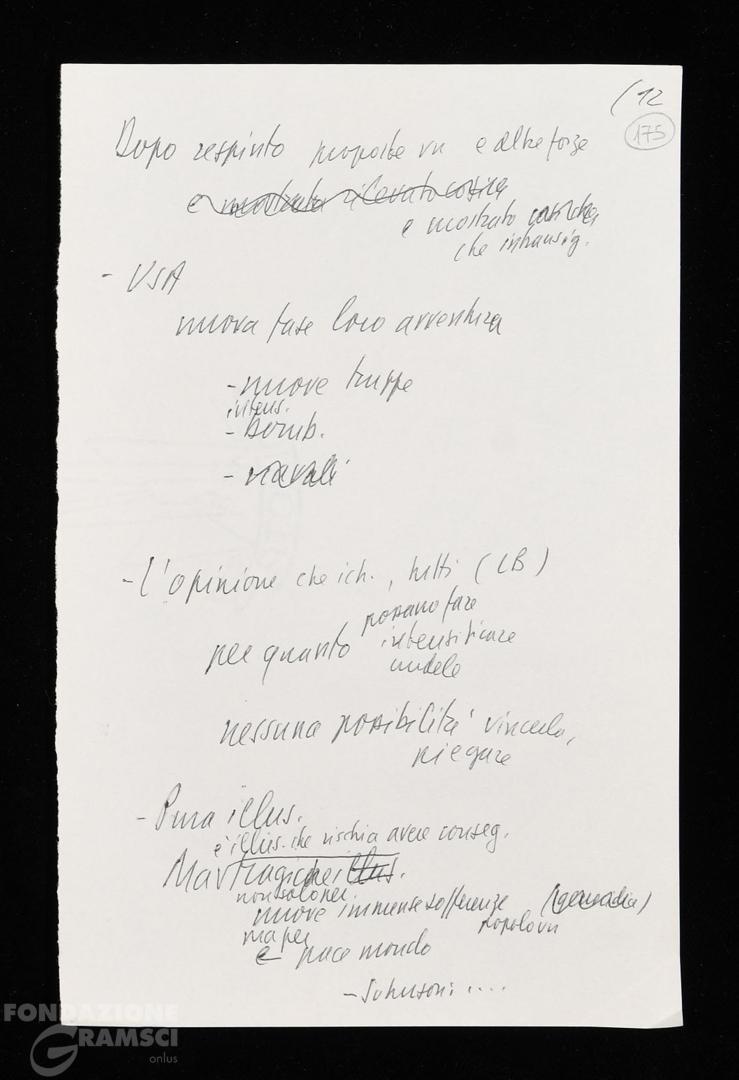 (12
175
Dopo respinto proposte VN e altre forze
e mostrato
e mostrato
che intransig.
- USA
nuova fase loro avventura
- nuove truppe
intens.
- Bomb.
- navali
- L'opinione che ich., tutti (LB)
possano fare
per quanto intensificare
crudele
nessuna possibilità vincerla,
piegare
- Pura illus.
è illus. che rischia avere conseg.
Ma tragiche illus.
non solo per
nuove immense sofferenze
popolo VN
ma per
e pace mondo
- Johnson: ....
FONDAZIONE
GRAMSCI
onlus